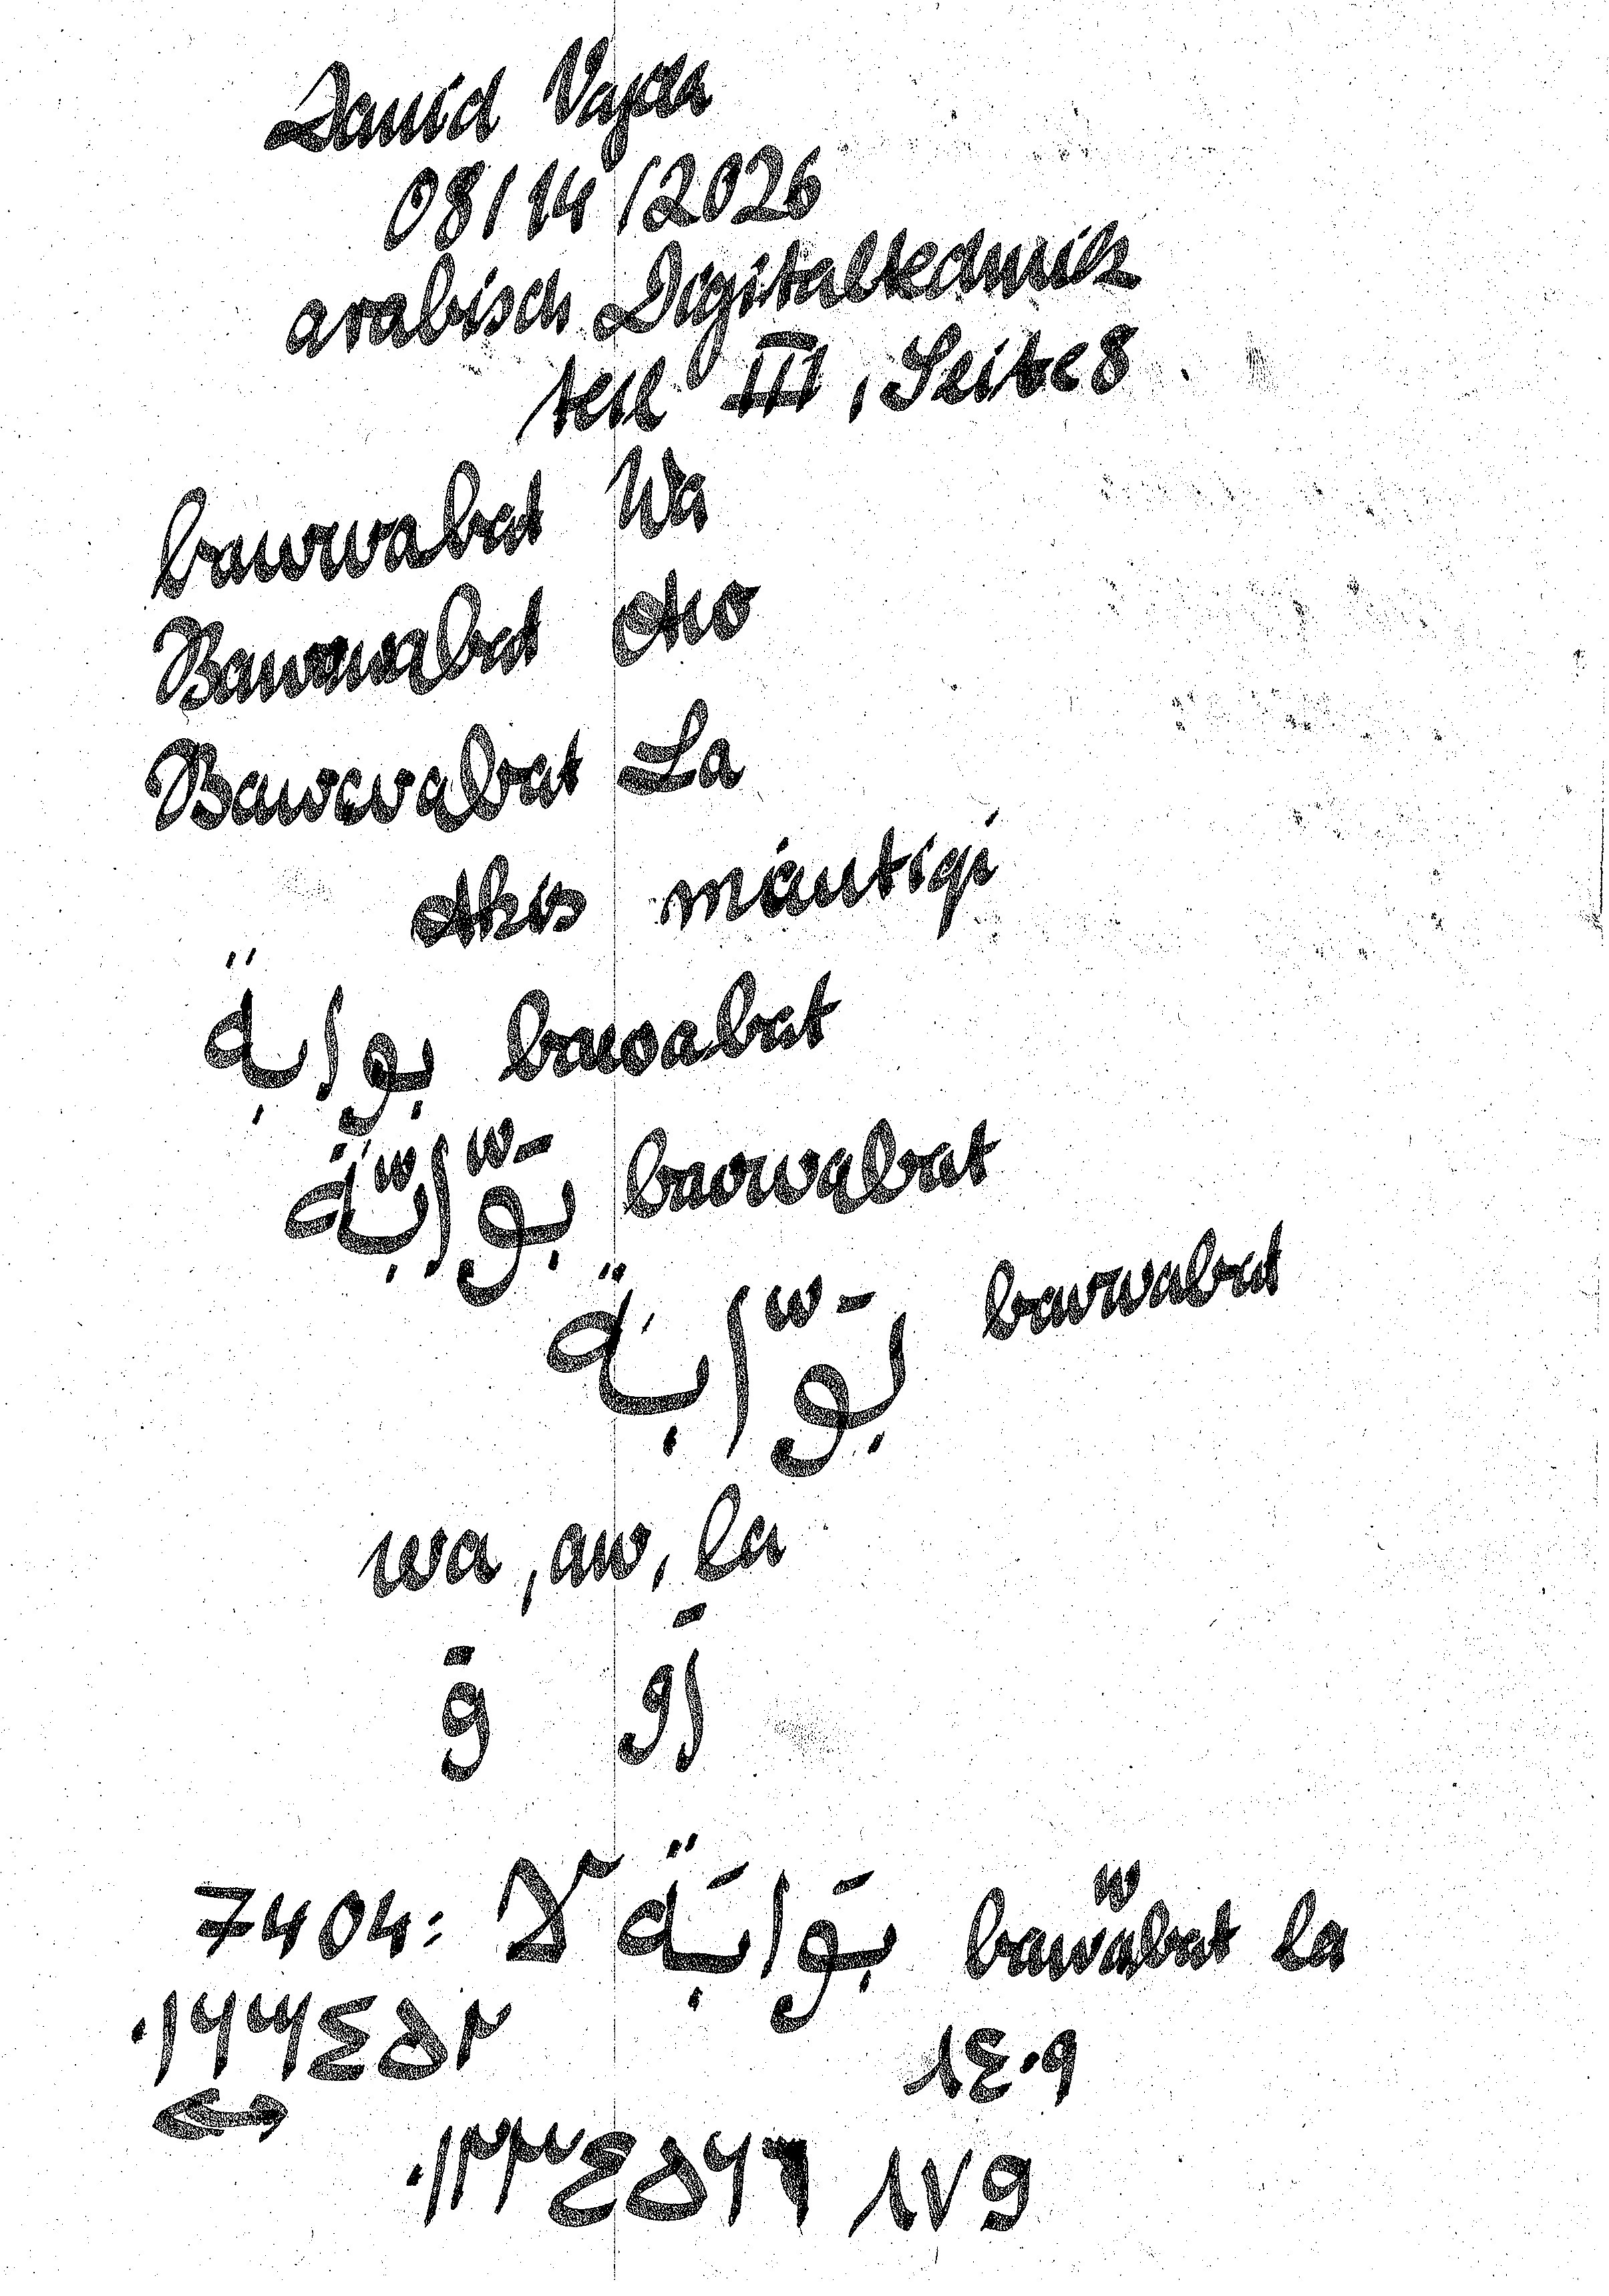 David Vajda
08/14/2026
arabisch Digitaltechnik
teil III, Seite 8
bawwabat Wa
Bawwabat
Bawwabat La
mantiqi
بوابة bawabat
بَوّابّة bawwabat
بَوّابة bawwabat
wa, aw, la
وَ أَو
7404: بَوَابَة لا bawabat la
٠١٢٣٤٥
١٤٠٩
٠١٢٣٤٥٦